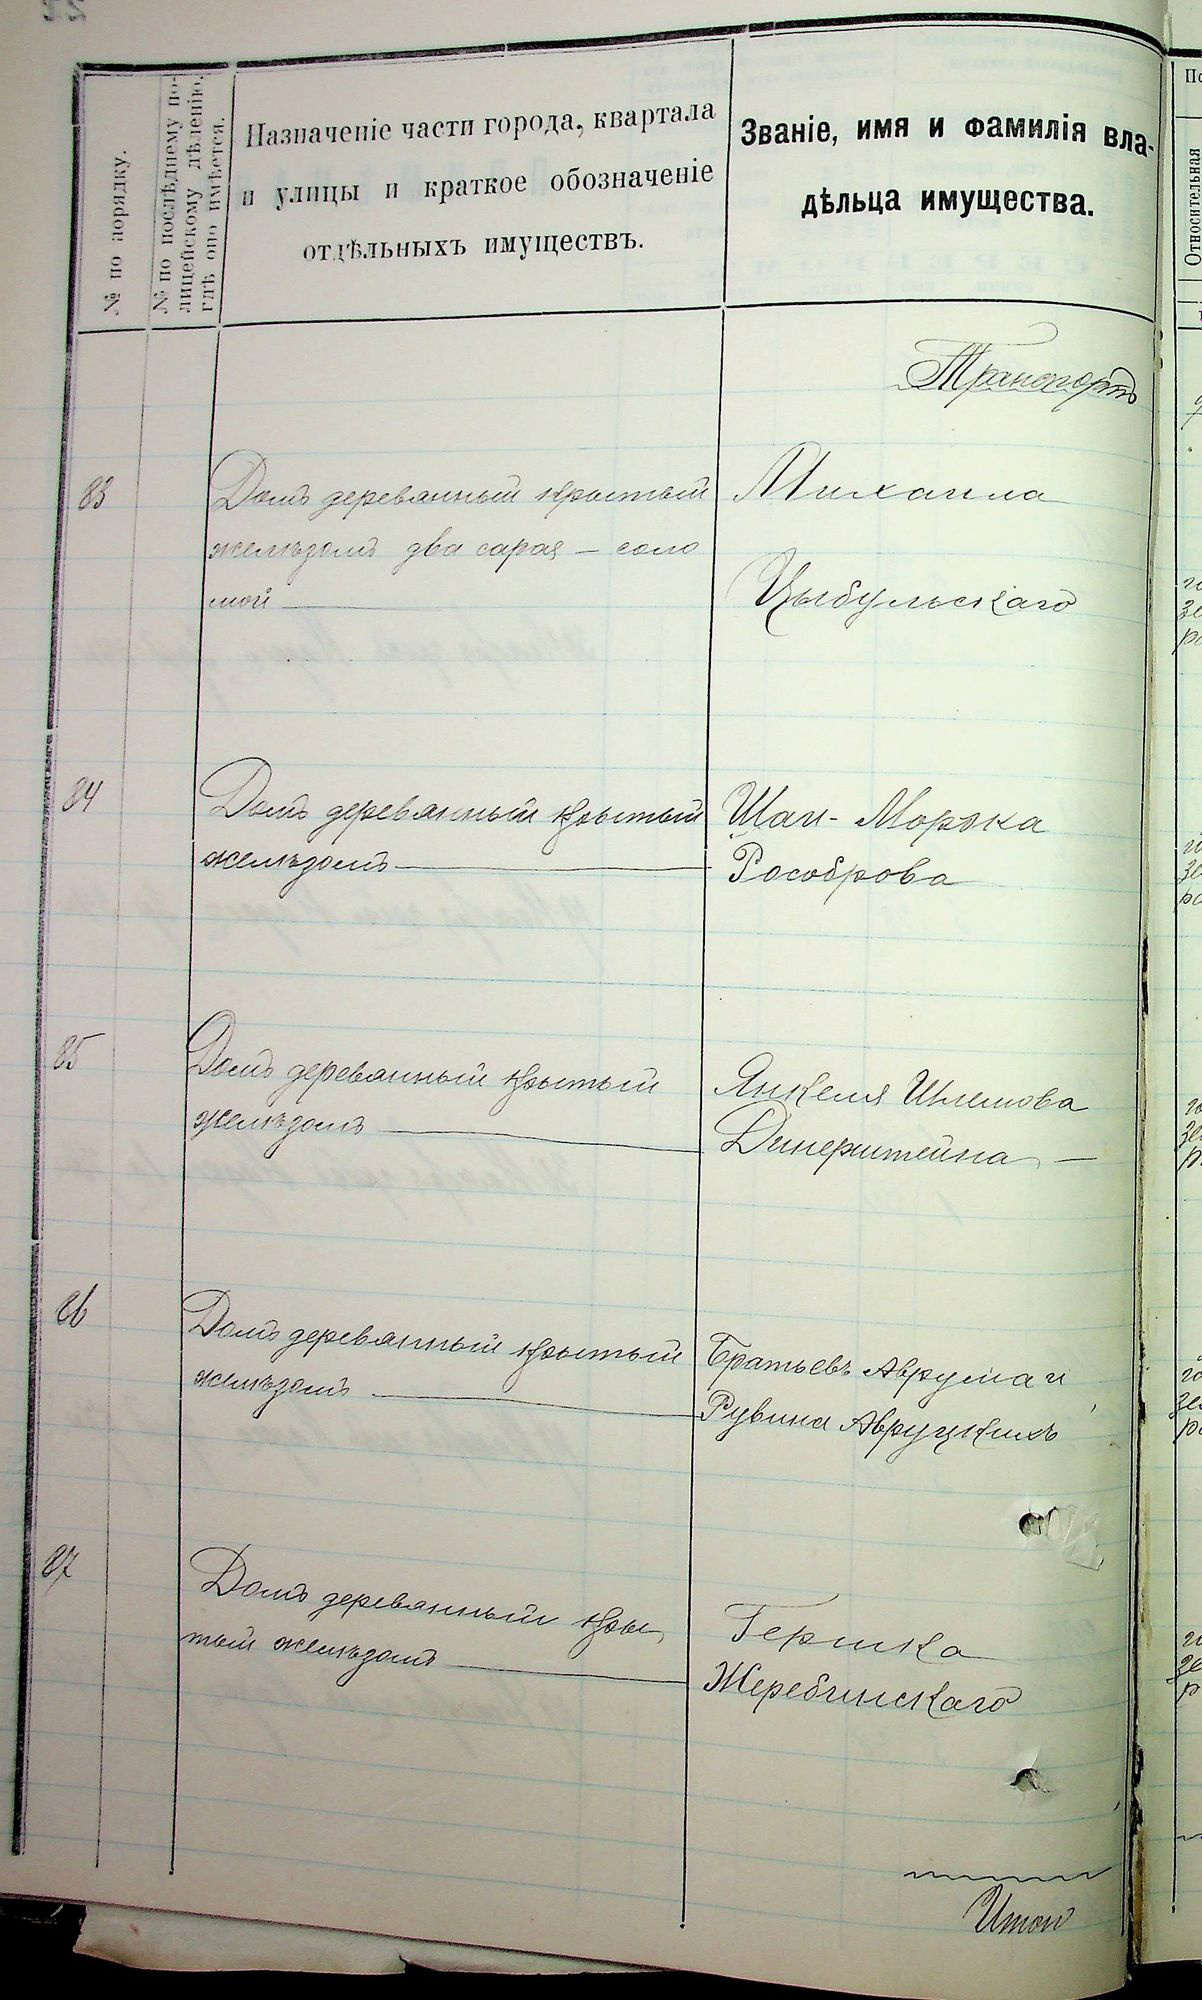 № по порядку.
№ по послѣднему по-
лицейскому дѣленію,
гдѣ оно имѣется.
Назначеніе части города, квартала
и улицы и краткое обозначеніе
отдѣльныхъ имуществъ.
Званіе, имя и фамилія вла-
дѣльца имущества.
Относительная
Транспортъ
83
Домъ деревянный крытый
желѣзомъ два сарая – соло
мой
Михаила
Цыбульскаго
84
Домъ деревянный крытый
желѣзомъ
Шаи-Морзка
Рособрова
85
Домъ деревянный крытый
желѣзомъ
Янкеля Шлемова
Динерштейна –
86
Домъ деревянный крытый
желѣзомъ
Братьевъ Аврума и
Рувина Авруцкихъ
87
Домъ деревянный кры
тый желѣзомъ
Гершка
Жеребинскаго
Итого